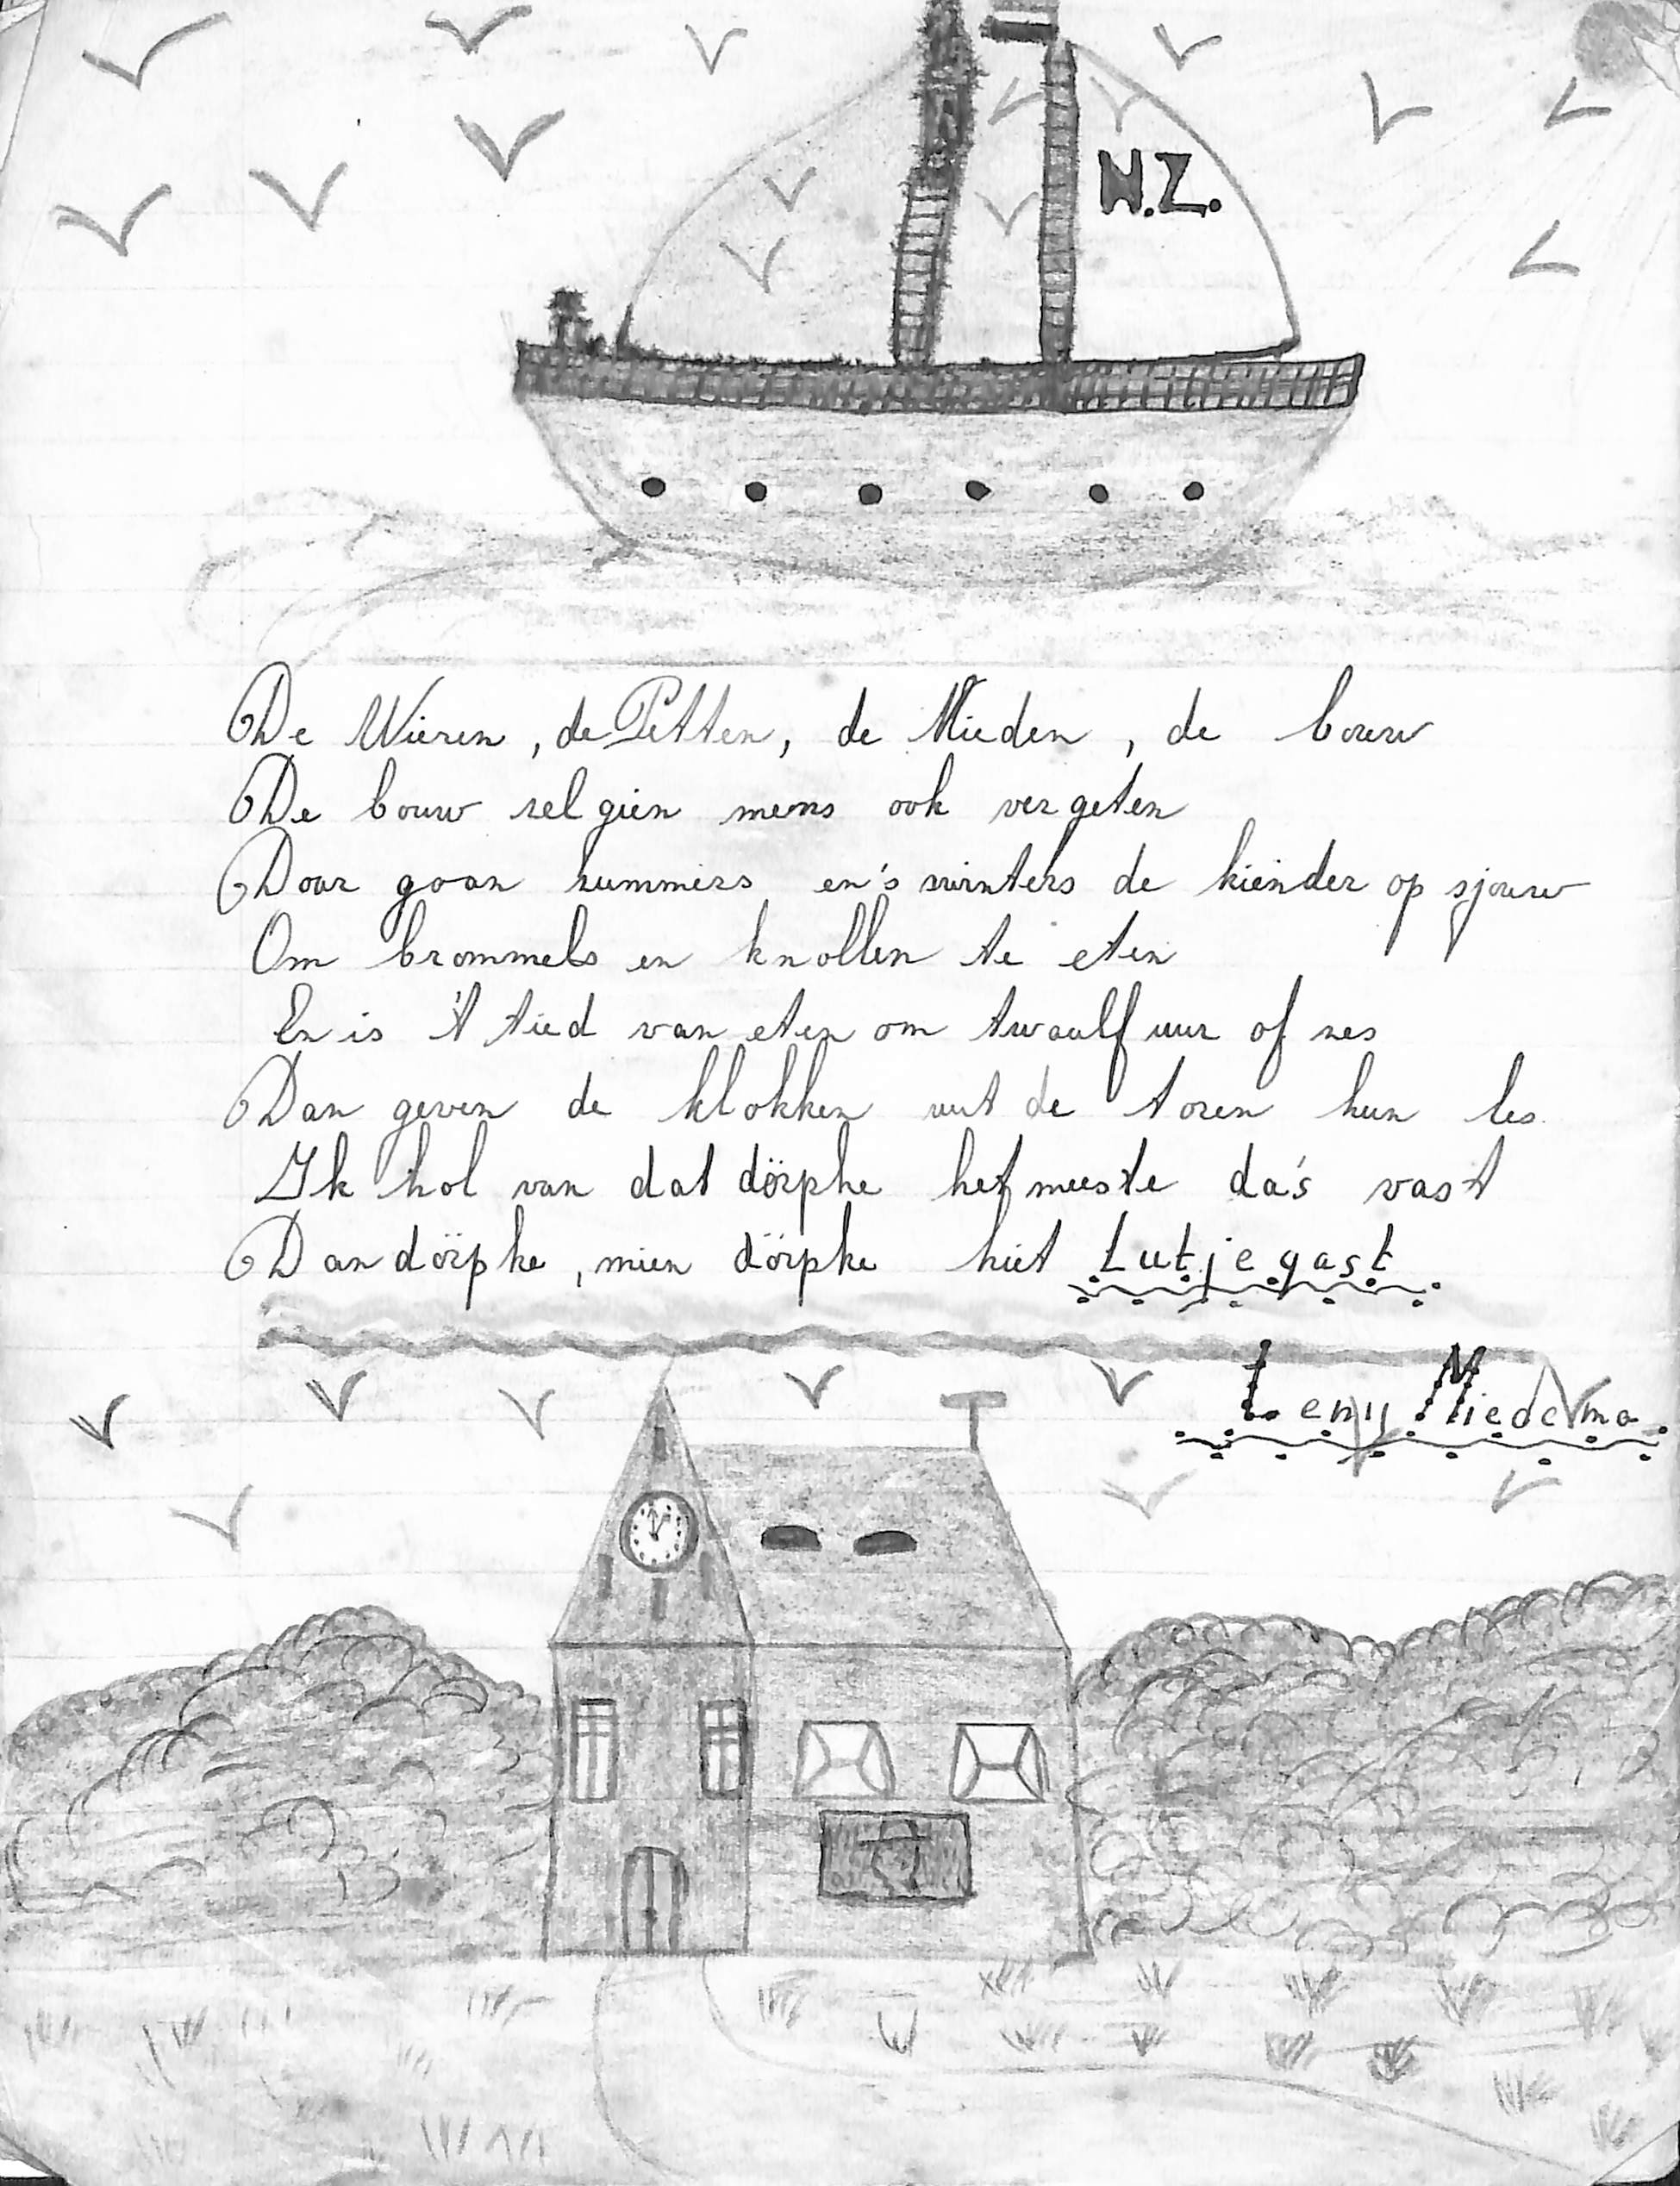 N.Z.
De Wieren, de Petten, de Mieden, de bouw
De bouw zel gien mens ook vergeten
Doar goan zummers en's winters de kiender op sjouw
Om brommels en knollen te eten
En is 't tied van eten om twaalf uur of zes
Dan geven de klokken uut de toren hun les
Ik hol van dat dörpke het meeste da's vast
Dan dörpke, mien dörpke hiet Lutjegast
Leny Miedema